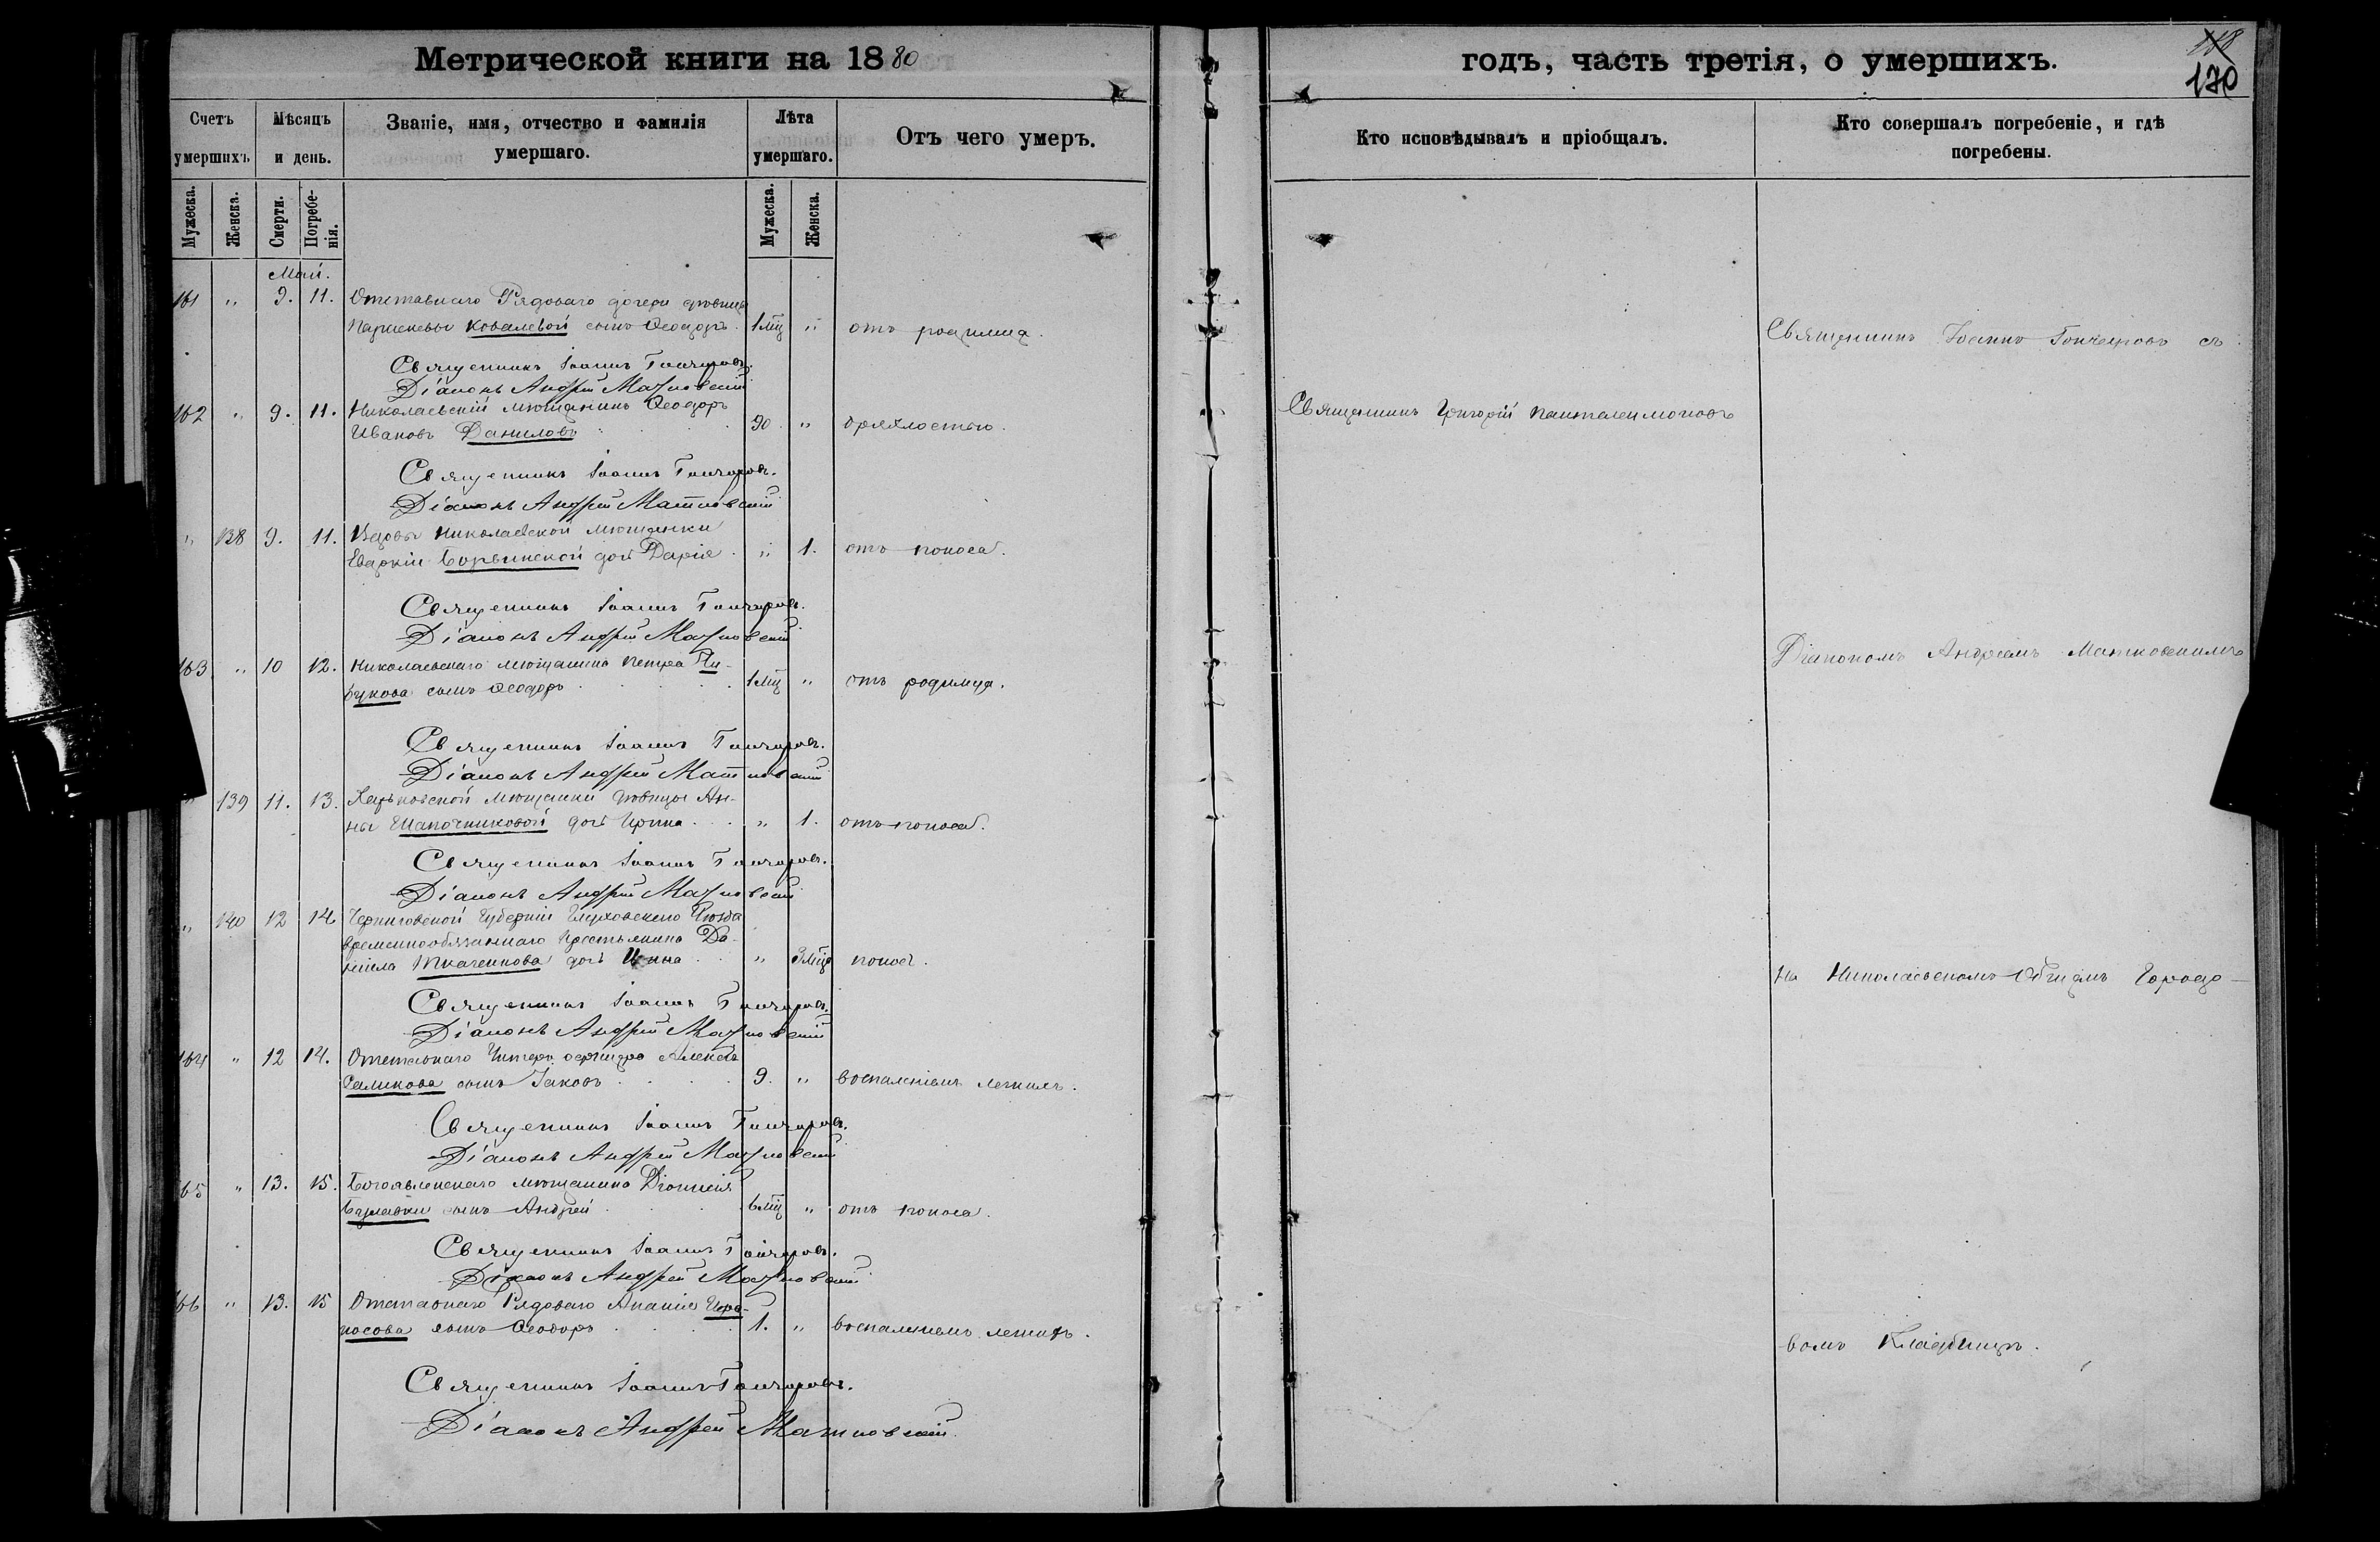 Метрической книги на 1880
годъ, часть третія, о умершихъ.
118
170
Счетъ умершихъ.
Мѣсяцъ и день.
Званіе, имя, отчество и фамилія умершаго.
Лѣта умершаго.
Отъ чего умеръ.
Кто исповѣдывалъ и пріобщалъ.
Кто совершалъ погребеніе, и гдѣ погребены.
Мужеска. Женска. Смерти. Погребенія. Мужеска. Женска.
Май.
161 " 9. 11. Отставнаго Рядоваго дочери дѣвицы
Параскевы Ковалевой сынъ Ѳеодоръ. 1 мц " отъ родимца.
Священникъ Іоаннъ Гончаровъ съ
Священникъ Іоаннъ Гончаровъ.
Діаконъ Андрей Матковскій
162 " 9. 11. Николаевскій мѣщанинъ Ѳеодоръ
Ивановъ Даниловъ 90. " дряхлостью.
Священникъ Григорій Пантелеимоновъ
Священникъ Іоаннъ Гончаровъ.
Діаконъ Андрей Матковскій
" 138 9. 11. Вдовы Николаевской мѣщанки
Евдокіи дочь Дарія " 1. отъ поноса.
Священникъ Іоаннъ Гончаровъ.
Діаконъ Андрей Матковскій
Діакономъ Андреемъ Матковскимъ
163 " 10 12. Николаевскаго мѣщанина Петра
сынъ Ѳеодоръ 1 мц " отъ родимца.
Священникъ Іоаннъ Гончаровъ.
Діаконъ Андрей Матковскій
" 139 11. 13. Харьковской мѣщанки дѣвицы Ан-
ны Шапочниковой дочь Ирина " 1. отъ поноса.
Священникъ Іоаннъ Гончаровъ.
Діаконъ Андрей Матковскій
" 140 12 14 Черниговской Губерніи Глуховскаго Уѣзда
временнообязаннаго крестьянина Да-
ніила Ткаченкова дочь " 9 мцв поноса.
На Николаевскомъ Общемъ Городо-
Священникъ Іоаннъ Гончаровъ.
Діаконъ Андрей Матковскій
164 " 12 14. Отставнаго Унтеръ офицера Алексѣя
Саликова сынъ Іаковъ 9. " воспаленіемъ легкихъ.
Священникъ Іоаннъ Гончаровъ.
Діаконъ Андрей Матковскій
65 " 13. 15. Богоявленскаго мѣщанина Діонисія
Булавки сынъ Андрей 6 мц " отъ поноса.
Священникъ Іоаннъ Гончаровъ.
Діаконъ Андрей Матковскій
66 " 13. 15 Отставнаго Рядоваго Ананія
сынъ Ѳеодоръ 1. " воспаленіемъ легкихъ.
вомъ Кладбищѣ.
Священникъ Іоаннъ Гончаровъ.
Діаконъ Андрей Матковскій.